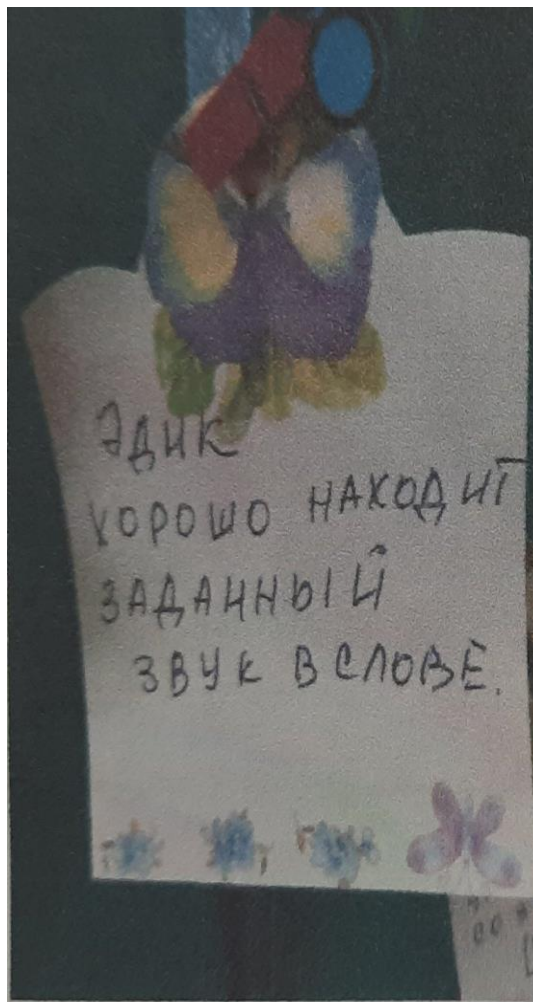 ЭДИК
ХОРОШО НАХОДИТ
ЗАДАННЫЙ
ЗВУК В СЛОВЕ.